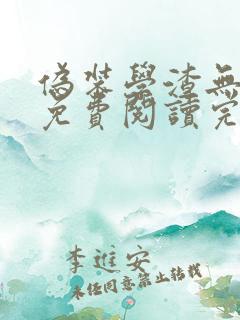 偽裝學渣無
免費閱讀完
李進安
未經同意禁止轉載